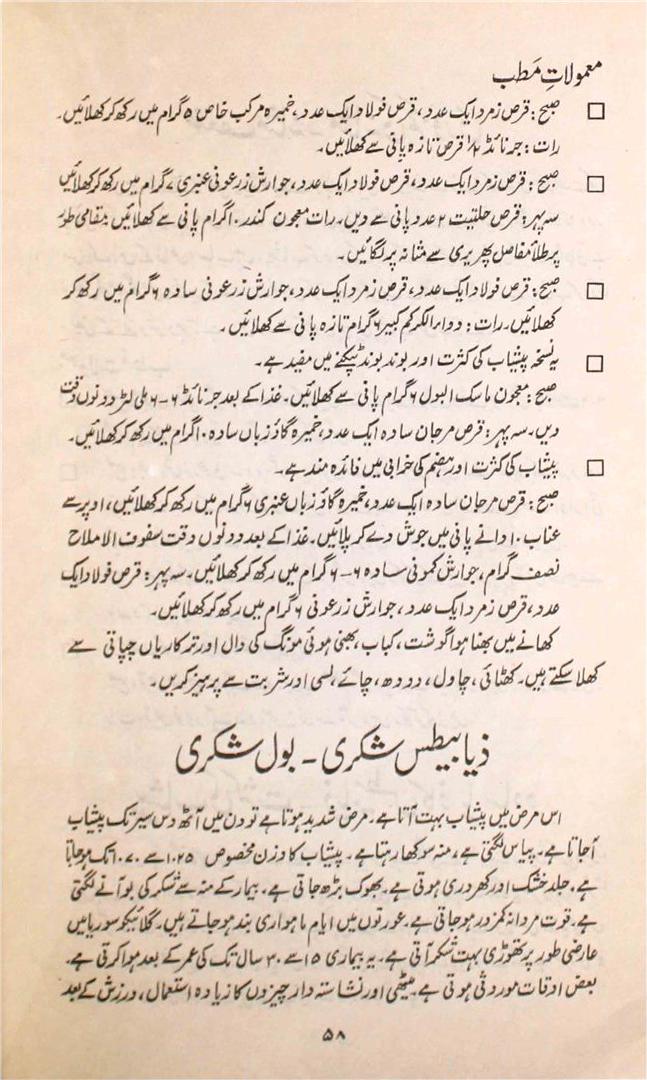 معمولاتِ مَطب
□ صبح: قرص زمرد ایک عدد، قرص فولاد ایک عدد، خمیرہ مرکب خاص ۵ گرام میں رکھ کر کھلائیں۔
رات: جرنائڈ ۱/۲ قرص تازہ پانی سے کھلائیں۔
□ صبح: قرص زمرد ایک عدد، قرص فولاد ایک عدد، جوارش زرعونی عنبری ۷ گرام میں رکھ کر کھلائیں
سہ پہر: قرص حلتیت ۲ عدد پانی سے دیں۔ رات معجون کندر ۱۰ گرام پانی سے کھلائیں بمقامی طور
پر طلاً مفاصل پھریری سے مثانہ پر لگائیں۔
□ صبح: قرص فولاد ایک عدد، قرص زمرد ایک عدد، جوارش زرعونی سادہ ۶ گرام میں رکھ کر
کھلائیں۔ رات: دواءالکرکم کبیر ۶ گرام تازہ پانی سے کھلائیں۔
□ یہ نسخہ پیشاب کی کثرت اور بوند بوند ٹپکنے میں مفید ہے۔
صبح: معجون ماسک البول ۶ گرام پانی سے کھلائیں۔ غذا کے بعد جرنائڈ ۶-۶ ملی لٹر دونوں وقت
دیں۔ سہ پہر: قرص مرجان سادہ ایک عدد، خمیرہ گاؤزباں سادہ ۱۰ گرام میں رکھ کر کھلائیں۔
□ پیشاب کی کثرت اور ہضم کی خرابی میں فائدہ مند ہے۔
صبح: قرص مرجان سادہ ایک عدد، خمیرہ گاؤزباں عنبری ۶ گرام میں رکھ کر کھلائیں، اوپر سے
عناب ۱۰ دانے پانی میں جوش دے کر پلائیں۔ غذا کے بعد دونوں وقت سفوف الاملاح
نصف گرام، جوارش کمونی سادہ ۶-۶ گرام میں رکھ کر کھلائیں۔ سہ پہر: قرص فولاد ایک
عدد، قرص زمرد ایک عدد، جوارش زرعونی ۶ گرام میں رکھ کر کھلائیں۔
کھانے میں بھنا ہوا گوشت، کباب، بھنی ہوئی مونگ کی دال اور ترکاریاں چپاتی سے
کھلا سکتے ہیں۔ کھٹائی، چاول، دودھ، چائے، لسی اور شربت سے پرہیز کریں۔
ذیابیطس شکری - بول شکری
اس مرض میں پیشاب بہت آتا ہے۔ مرض شدید ہوتا ہے تو دن میں آٹھ دس سیر تک پیشاب
آجاتا ہے۔ پیاس لگتی ہے، منہ سوکھا رہتا ہے۔ پیشاب کا وزن مخصوص ۱۰۲۵ سے ۱۰۷۰ تک ہو جاتا
ہے۔ جلد خشک اور کھردری ہوتی ہے۔ بھوک بڑھ جاتی ہے۔ بیمار کے منہ سے شکر کی بو آنے لگتی
ہے۔ قوت مردانہ کمزور ہو جاتی ہے۔ عورتوں میں ایام ماہواری بند ہو جاتے ہیں۔ گلائیکوسوریا میں
عارضی طور پر تھوڑی بہت شکر آتی ہے۔ یہ بیماری ۱۵ سے ۳۰ سال تک کی عمر کے بعد ہوا کرتی ہے۔
بعض اوقات موروثی ہوتی ہے۔ میٹھی اور نشاستہ دار چیزوں کا زیادہ استعمال، ورزش کے بعد
۵۸